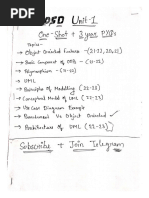 OOSD Unit-1
One-Shot + 3 year PYQs
Topic-
→ Object Oriented Features - (21-22, 20, 21)
→ Basic Component of OOS - (21-22)
→ Polymorphism - (21-22)
→ UML
→ Principles of Modelling (22-23)
→ Conceptual Model of UML (22-23)
→ Use Case Diagram Example
→ Procedural Vs Object Oriented
→ Architecture of UML (22-23)
Subscribe + Join Telegram